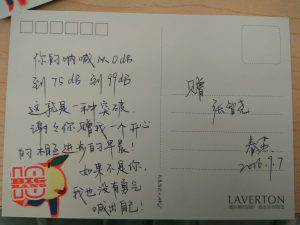 你的呐喊从0dB
到75dB 到99dB
这就是一种突破
谢谢你赠我一个开心
的相互进步的早晨!
如果不是你,
我也没有勇气
喊出自己!
赠
张智尧
2016.9.7
10
BIG
BANG
LAVERTON